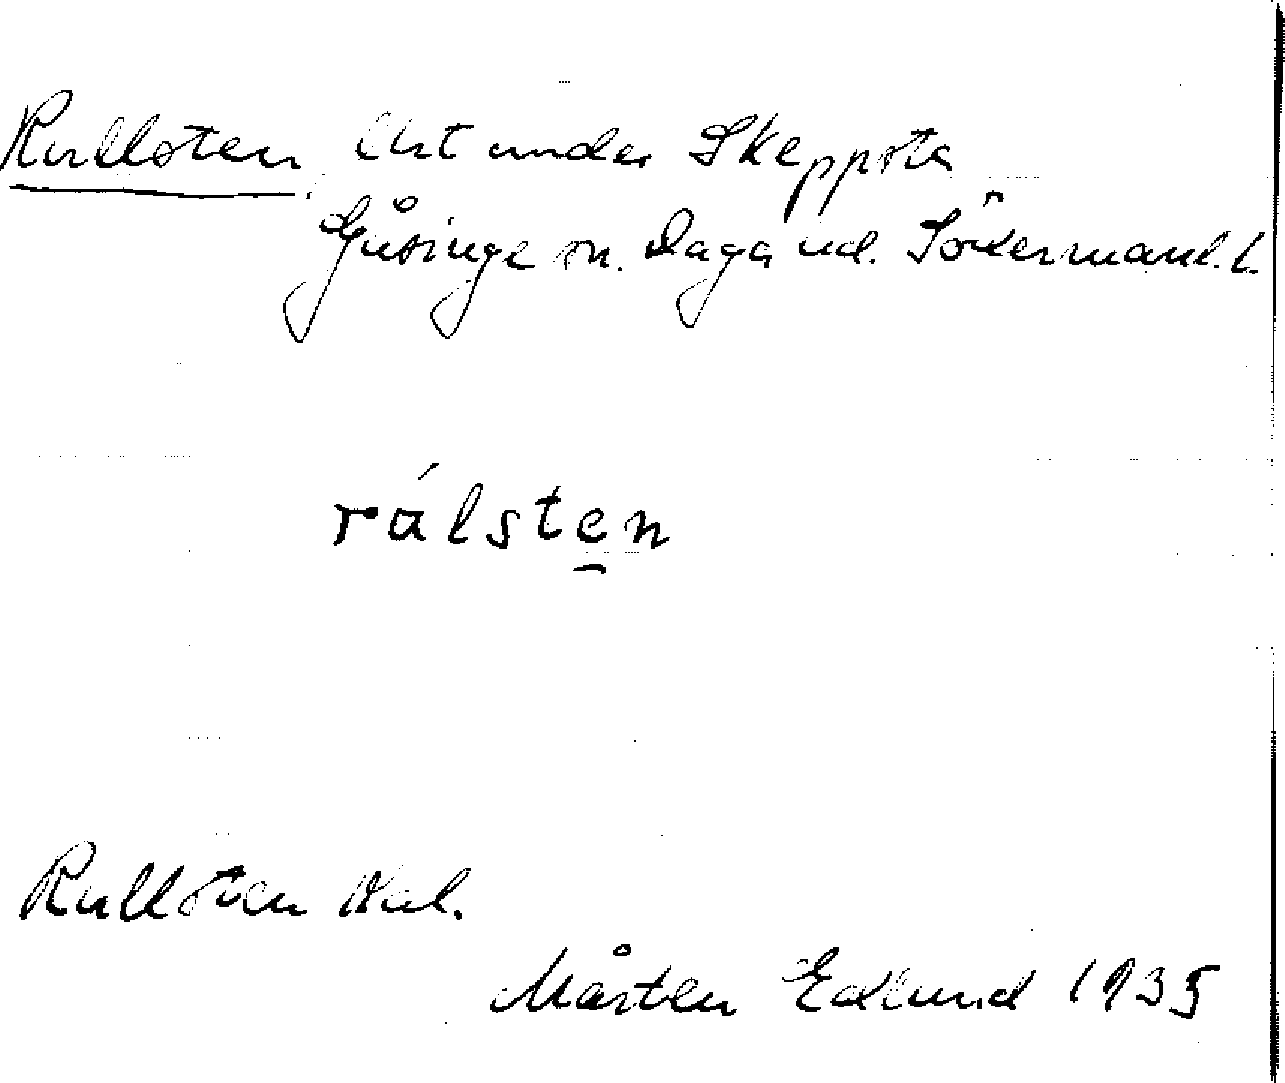 Rullsten, Utt under Skeppsta
Gåsinge sn. Daga hd. Södermanl. l.
rálstęn
Rullsten
Mårten Edlund 1935